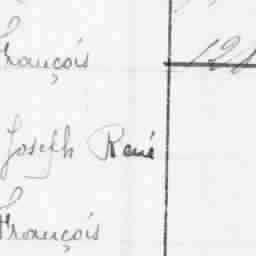 François
Joseph René
François